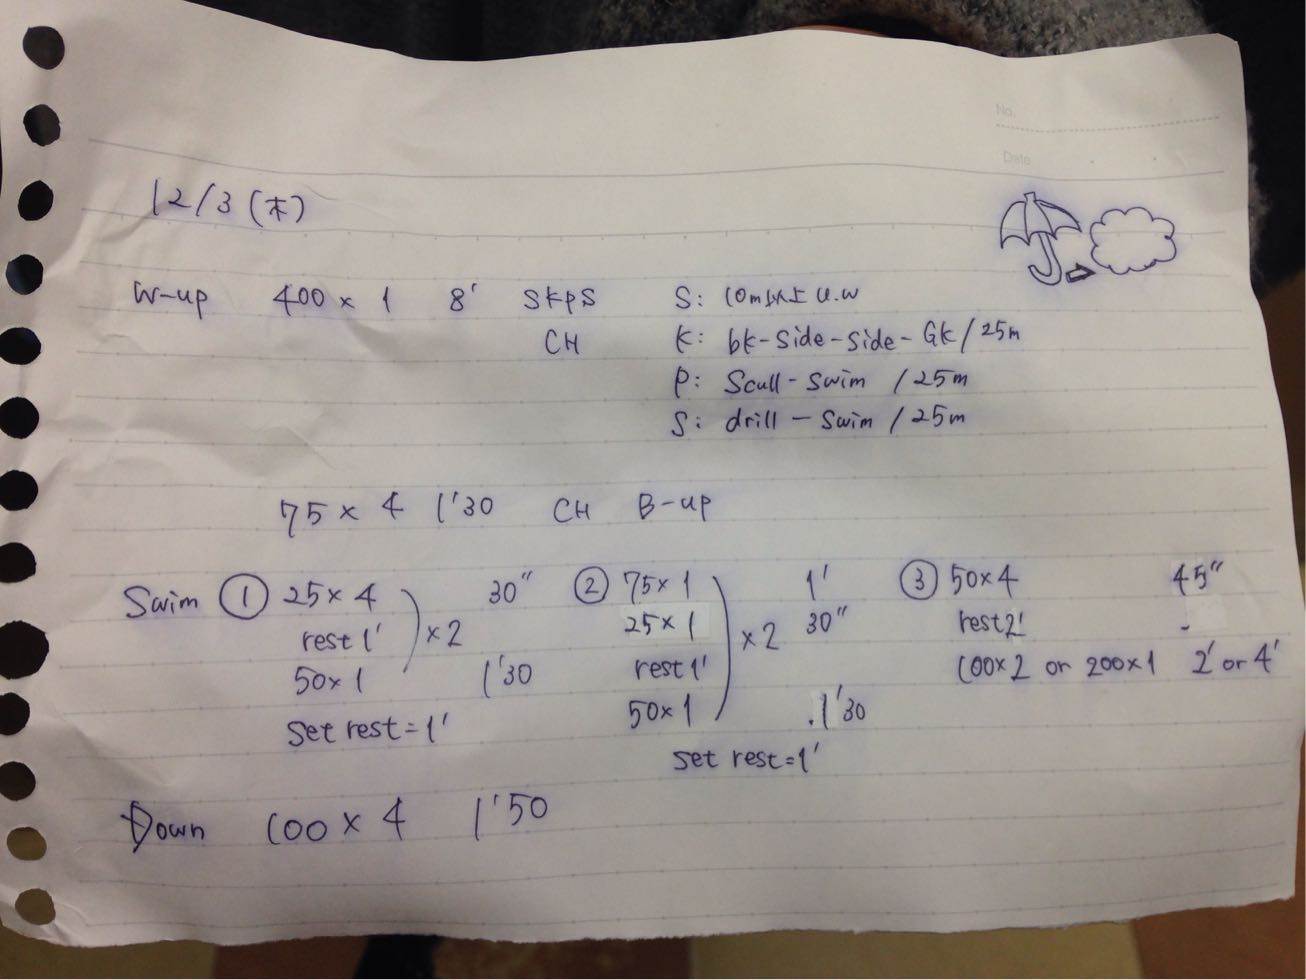 No.
Date
12/3 (木)
W-up 400×1 8' SkpS S: 10m以上 U.W
CH K: bk-side-side-Gk/25m
P: Scull-Swim /25m
S: drill-Swim /25m
75×4 1'30 CH B-up
Swim ① 25×4 30" ② 75×1 1' ③ 50×4 45"
rest 1' ×2 25×1 ×2 30" rest2'
50×1 1'30 rest 1' 100×2 or 200×1 2' or 4'
Set rest=1' 50×1 1'30
Set rest=1'
Down 100×4 1'50